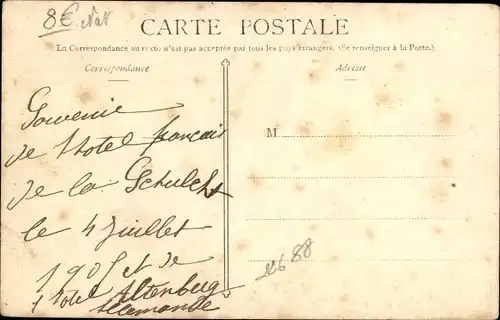 8€
CARTE POSTALE
La Correspondance au recto n'est pas acceptée par tous les pays étrangers. (Se renseigner à la Poste.)
Correspondance
Adresse
M
Souvenir
de l'hotel francais
de la Schulcht
le 4 juillet
1905 et de
l hotel Altenberg
allemande
88